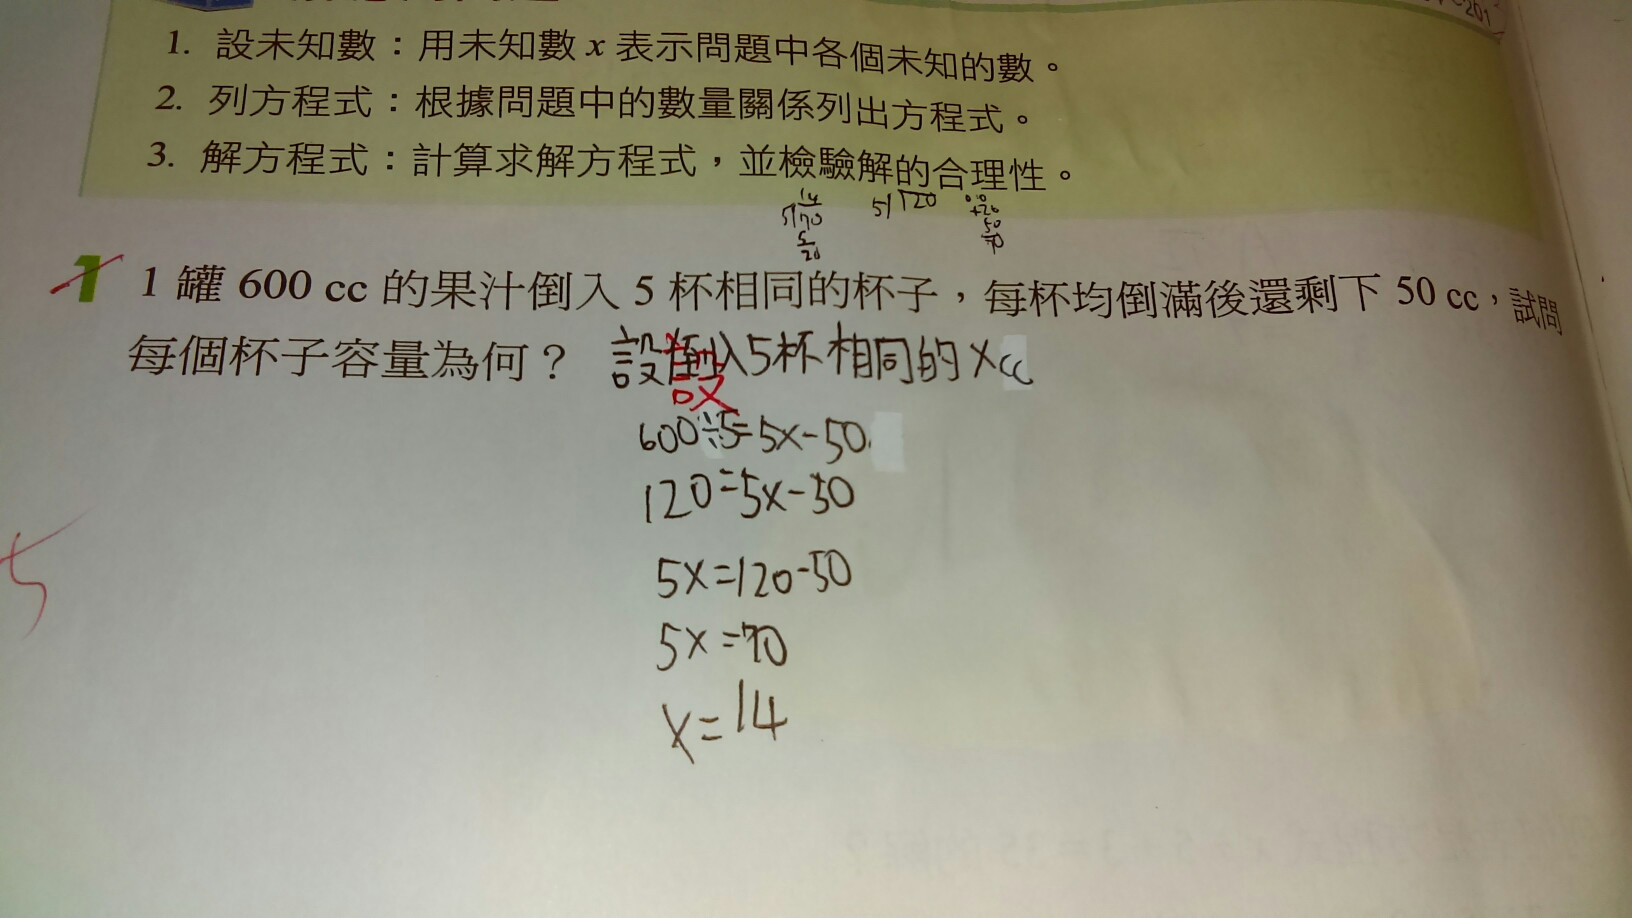 1. 設未知數：用未知數 x 表示問題中各個未知的數。
2. 列方程式：根據問題中的數量關係列出方程式。
3. 解方程式：計算求解方程式，並檢驗解的合理性。
14
5 70
5
20
5 120
50
70
1 1 罐 600 cc 的果汁倒入 5 杯相同的杯子，每杯均倒滿後還剩下 50 cc，試問
每個杯子容量為何？ 設倒入5杯相同的xcc
設
600÷5=5x-50
120=5x-50
5x=120-50
5x=70
x=14